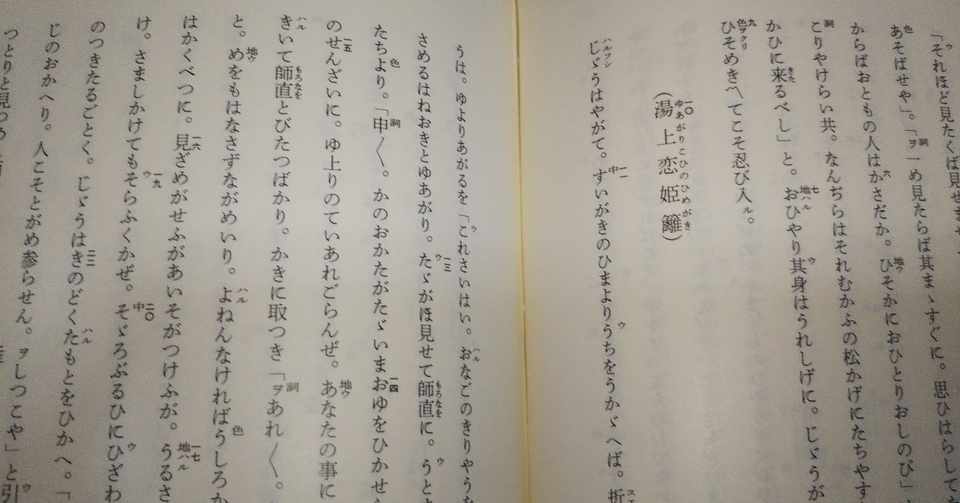 「それほど見たくば見せませ
すぐに。思ひはらして
あそばせや」。「ヲ一め見たらば其まゝすぐに。
からばおともの人はかさだか。ひそかにおひとりおしのび」
こりやけらい共。なんぢらはそれむかふの松かげにたちやす
かひに来るべし」と。おひやり其身はうれしげに。じゞうが
ひそめき〳〵てこそ忍び入ル。
(湯上恋姫籬)
じゞうはやがて。すいがきのひまよりうちをうかゞへば。折
うは。ゆよりあがるを「これさいはい。おなごのきりやうを
さめるはねおきとゆあがり。たゞがほ見せて師直に。うと
たちより。「申〳〵。かのおかたがたゞいまおゆをひかせ
のせんざいに。ゆ上りのていあれごらんぜ。あなたの事に
きいて師直とびたつばかり。かきに取つき「ヲあれ〳〵。
と。めをもはなさずながめいり。よねんなければうしろか
はかくべつに。見ざめがせふがあいそがつけふが。うるさ
け。さましかけてもそらふくかぜ。そゞろぶるひにひざわ
のつきたるごとく。じゞうはきのどくたもとをひかへ。「
じのおかへり。人こそとがめ参らせん。ヲしつこや」と引
つとりと見つめ